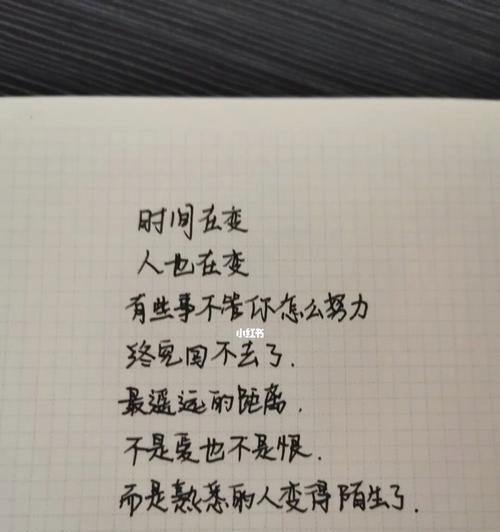 时间在变
人也在变
有些事不管你怎么努力
小红书
终究回不去了.
最遥远的距离.
不是爱也不是恨.
而是熟悉的人变得陌生了.